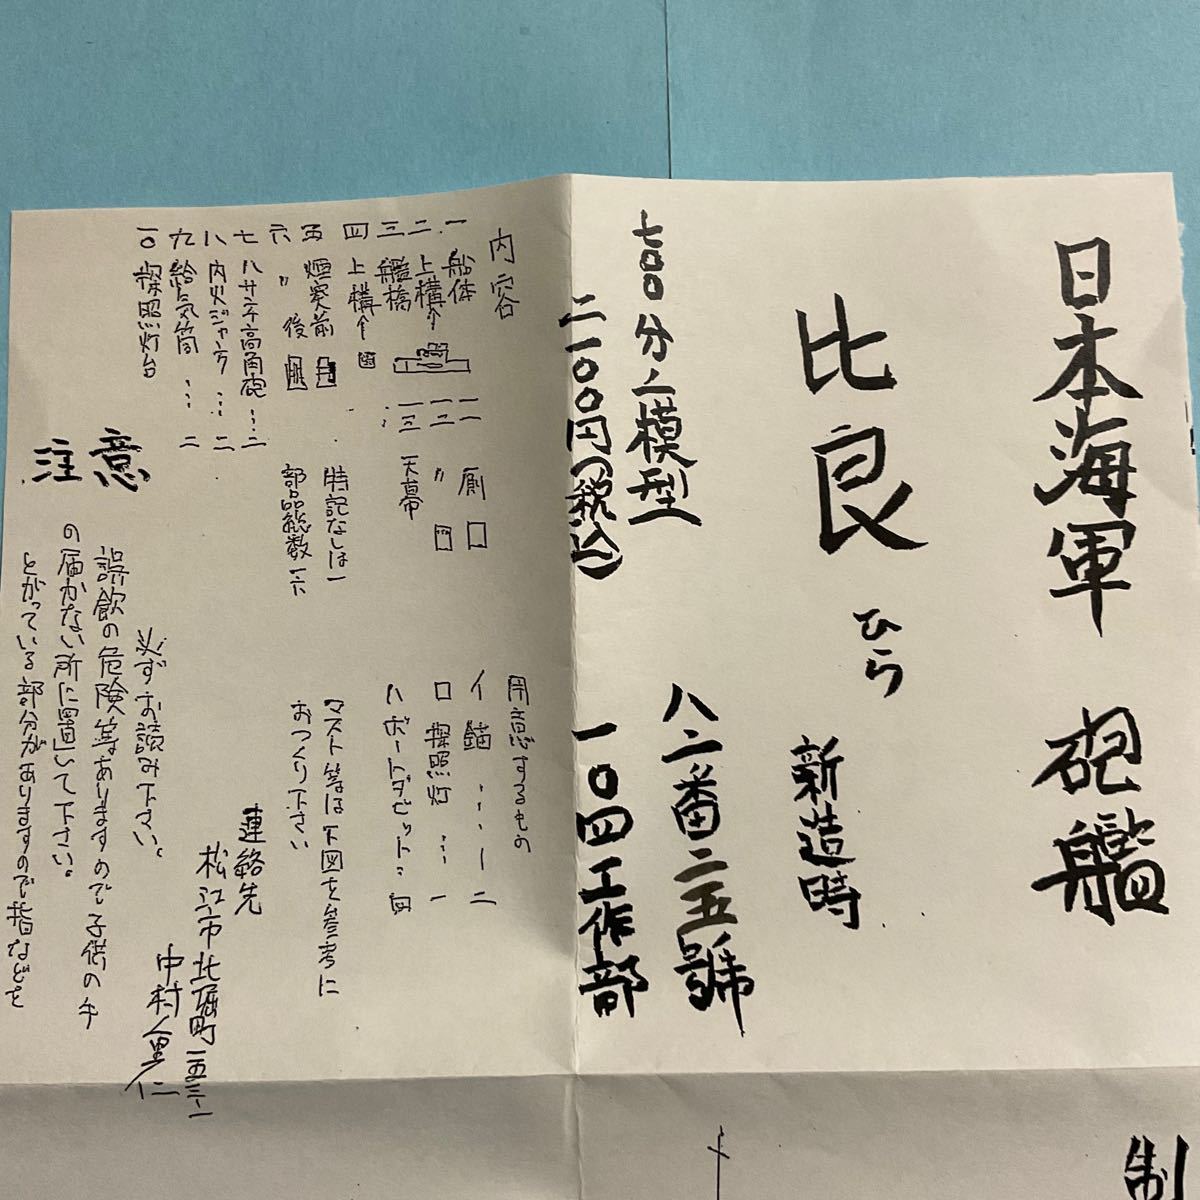 日本海軍 砲艦
比良 ひら 新造時
七〇〇分ノ一模型
八二番二五號
二一〇〇円(税込)
一〇四工作部
内容
一 船体
二 上構
三 艦橋
四 上構
五 煙突前
六 〃 後
七 八サンチ高角砲…二
八 内火ジャンク…二
九 給気筒…二
一〇 探照灯台
一一 厠
一二 〃
一三 天幕
特記なしは一
部品総数 一六
用意するもの
イ 錨…二
ロ 探照灯…一
ハ ボートダビット…四
マスト等は下図を参考に
おつくり下さい
連絡先
松江市北堀町
中村
注意
必ずお読み下さい。
誤飲の危険等ありますので子供の手
の届かない所に置いて下さい。
とがっている部分がありますので指などを
制